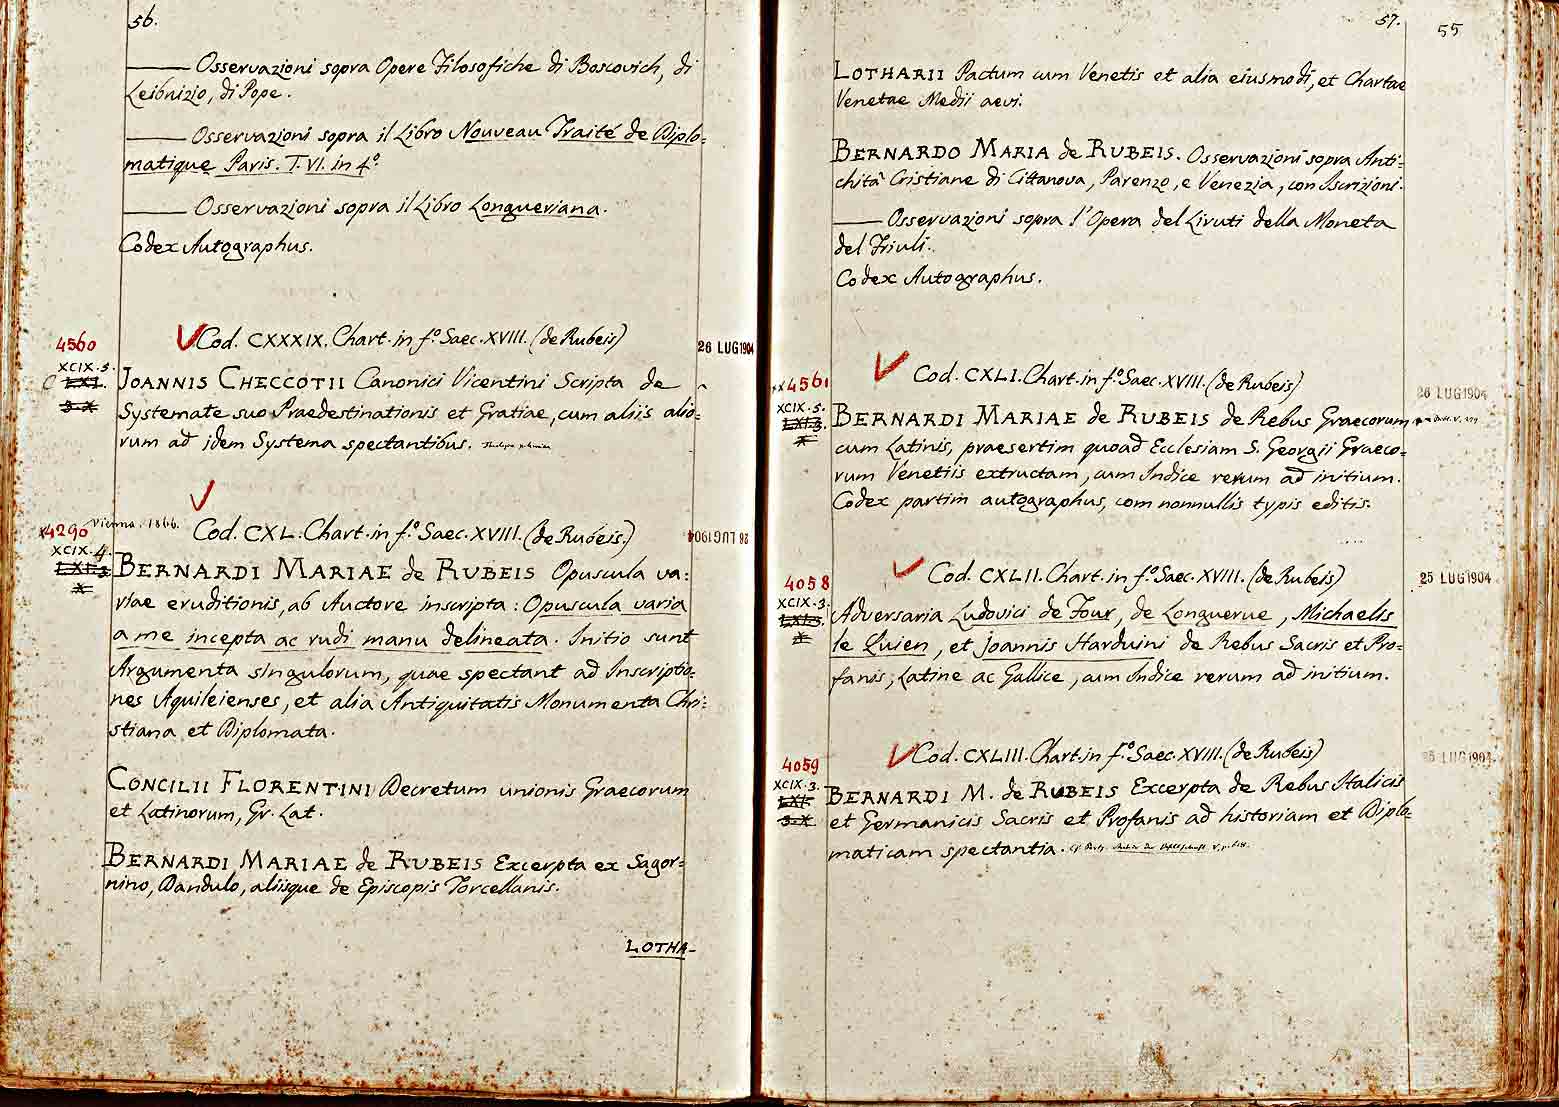 56.
——— Osservazioni sopra Opere Filosofiche di Boscovich, di
Leibnizio, di Pope.
——— Osservazioni sopra il Libro Nouveau Traité de Diplo=
matique Paris. T. VI. in 4.º
——— Osservazioni sopra il Libro Longueriana.
Codex Autographus.
4560
XCIX. 5.
Cod. CXXXIX. Chart. in fº. Saec. XVIII. (de Rubeis)
26 LUG 1904
JOANNIS CHECCOTII Canonici Vicentini Scripta de
Systemate suo Praedestinationis et Gratiae, cum aliis alio=
rum ad idem Systema spectantibus.
x4290
Vienna. 1866.
XCIX. 4.
Cod. CXL. Chart. in fº. Saec. XVIII. (de Rubeis.)
26 LUG 1904
BERNARDI MARIAE de RUBEIS Opuscula va=
riae eruditionis, ab Auctore inscripta: Opuscula varia
a me incepta ac rudi manu delineata. Initio sunt
Argumenta singulorum, quae spectant ad Inscriptio=
nes Aquileienses, et alia Antiquitatis Monumenta Chri=
stiana et Diplomata.
CONCILII FLORENTINI Decretum unionis Graecorum
et Latinorum, Gr. Lat.
BERNARDI MARIAE de RUBEIS Excerpta ex Sagor=
nino, Dandulo, aliisque de Episcopis Torcellanis.
LOTHA-
57.
55
LOTHARII Pactum cum Venetis et alia eiusmodi, et Chartae
Venetae Medii aevi.
BERNARDO MARIA de RUBEIS. Osservazioni sopra Anti=
chità Cristiane di Cittanova, Parenzo, e Venezia, con Iscrizioni.
——— Osservazioni sopra l'Opera del Liruti della Moneta
del Friuli.
Codex Autographus.
xx4561
XCIX. 5.
Cod. CXLI. Chart. in fº. Saec. XVIII. (de Rubeis)
26 LUG 1904
BERNARDI MARIAE de RUBEIS de Rebus Graecorum
cum Latinis, praesertim quoad Ecclesiam S. Georgii Graeco=
rum Venetiis extructam, cum Indice rerum ad initium.
Codex partim autographus, com nonnullis typis editis.
4058
XCIX. 3.
Cod. CXLII. Chart. in fº. Saec. XVIII. (de Rubeis)
25 LUG 1904
Adversaria Ludovici de Four, de Longuerue, Michaelis
le Quien, et Joannis Harduini de Rebus Sacris et Pro=
fanis, Latine ac Gallice, cum Indice rerum ad initium.
4059
XCIX. 3.
Cod. CXLIII. Chart. in fº. Saec. XVIII. (de Rubeis)
25 LUG 1904
BERNARDI M. de RUBEIS Excerpta de Rebus Italicis
et Germanicis Sacris et Profanis ad historiam et Diplo=
maticam spectantia.